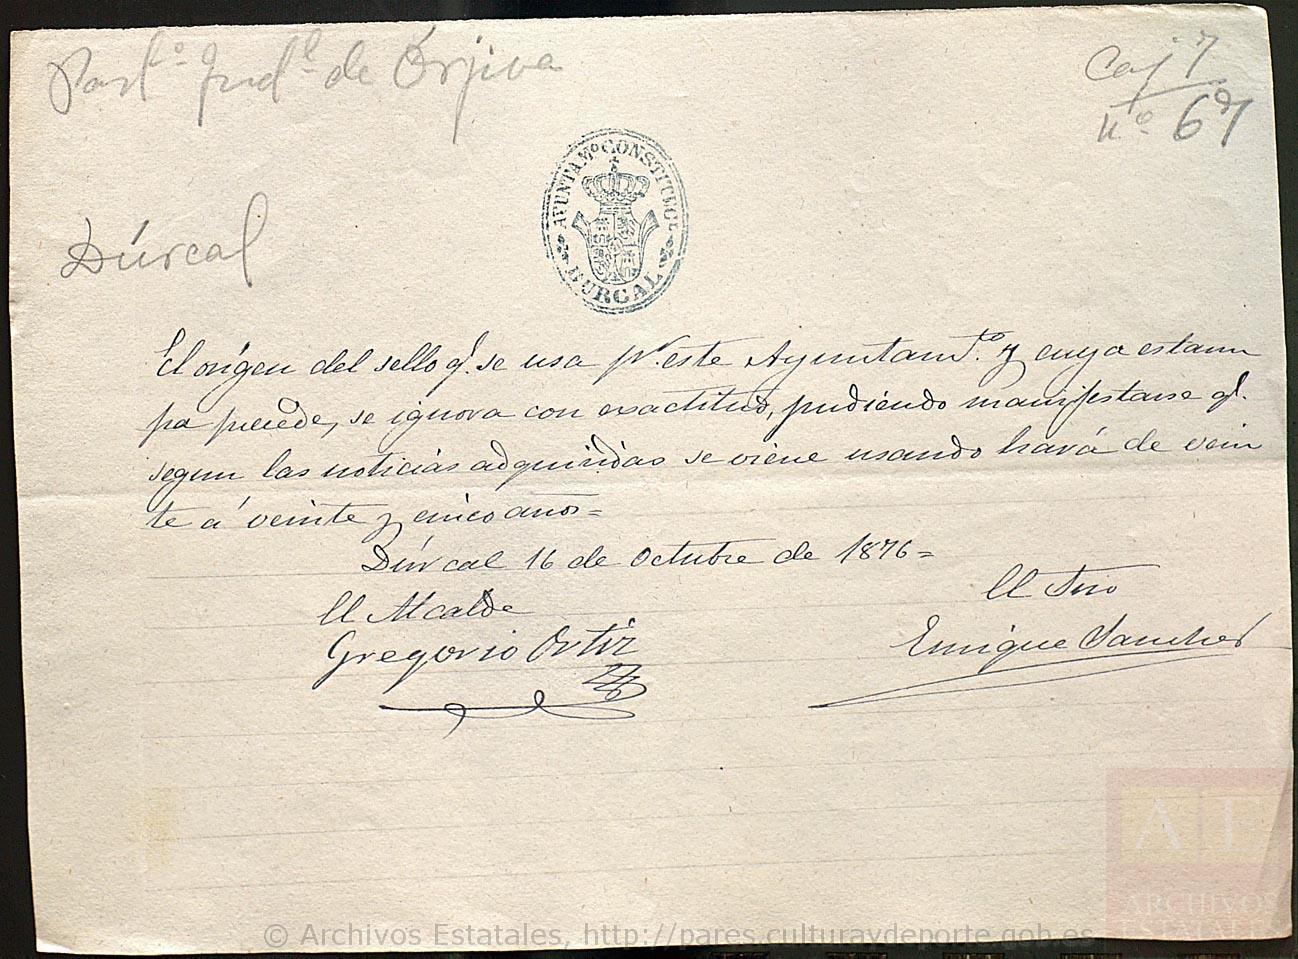 Part.º Jud.l de Órjiva
Caj 7
n.º 69
Dúrcal
AYUNTAM.º CONSTITUCL
DURCAL
El orígen del sello q.e se usa p.r este Ayuntam.to y cuya estam
pa precede, se ignora con exactitud, pudiendo manifestarse q.e
segun las noticias adquiridas se viene usando hará de vein
te á veinte y cinco años=
Dúrcal 16 de Octubre de 1876=
El Alcalde
El Srio
Gregorio Ortiz
Enrique Sanchez
AE
ARCHIVOS
ESTATALES
© Archivos Estatales, http://pares.culturaydeporte.gob.es